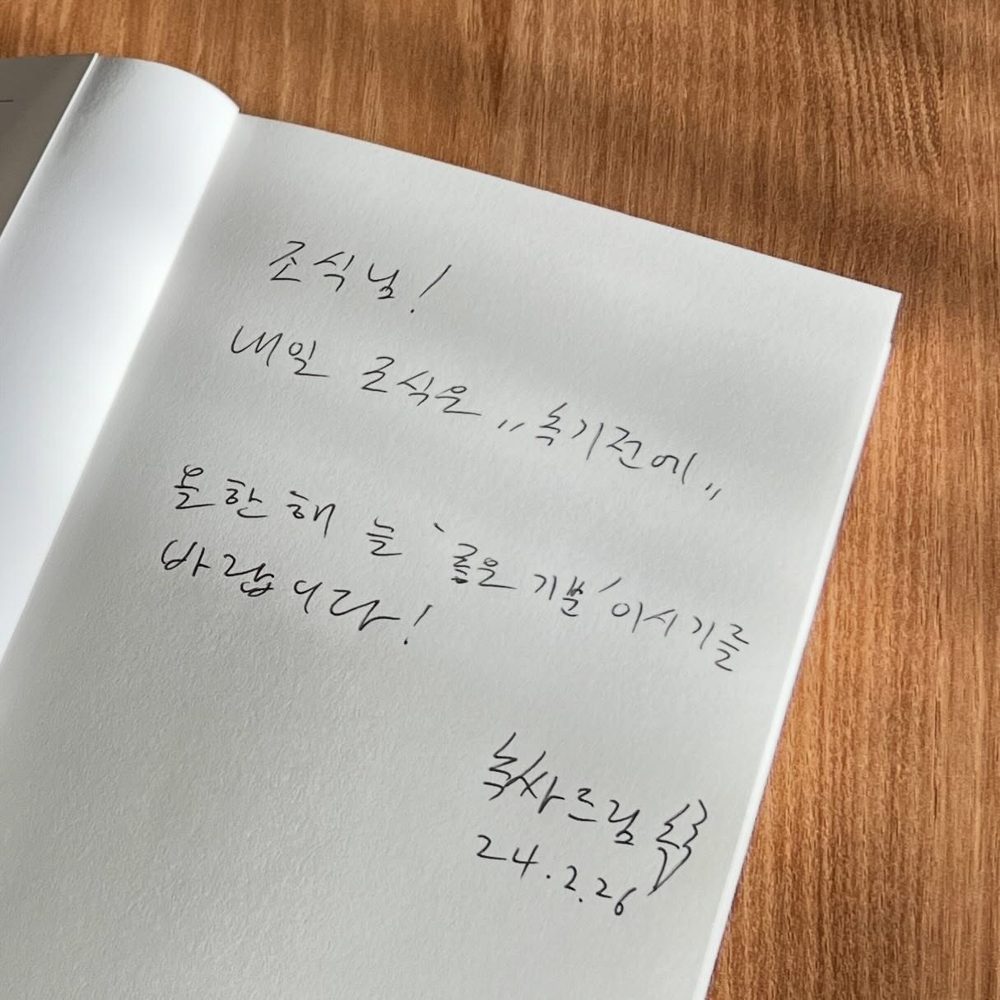 조식님!
내일 조식은 ,,녹기전에,,
올 한 해 늘 '좋은 기분'이시기를
바랍니다!
녹싸 드림
24.2.26